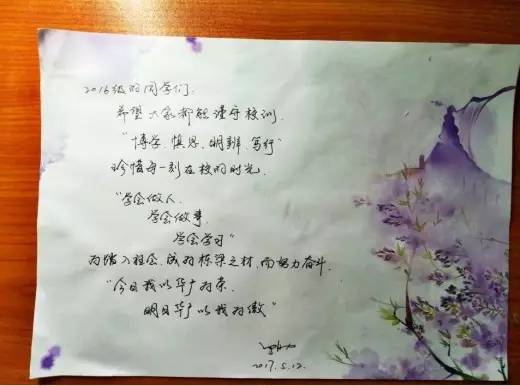 2016级的同学们:
希望大家都能谨守校训.
"博学、慎思、明辨、笃行"
珍惜每一刻在校的时光.
"学会做人.
学会做事.
学会学习"
为踏入社会、成为栋梁之材,而努力奋斗.
"今日我以华广为荣.
明日华广以我为傲"
2017.5.12.